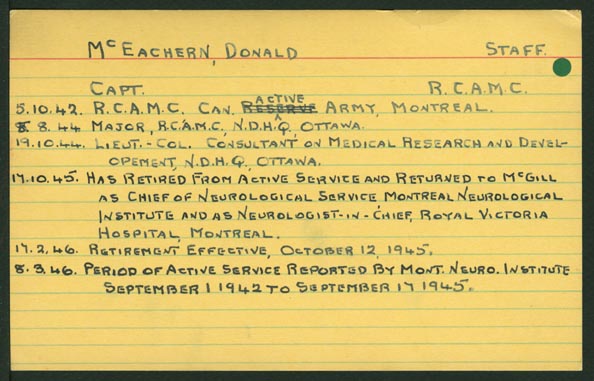 McEACHERN, DONALD STAFF.
CAPT. R.C.A.M.C.
5.10.42. R.C.A.M.C. CAN. RESERVE ACTIVE ARMY, MONTREAL.
8. 8. 44. MAJOR, R.C.A.M.C., N.D.H.Q., OTTAWA.
19.10.44. LIEUT.-COL. CONSULTANT ON MEDICAL RESEARCH AND DEVEL-
OPEMENT, N.D.H.Q., OTTAWA.
17.10.45. HAS RETIRED FROM ACTIVE SERVICE AND RETURNED TO McGILL
AS CHIEF OF NEUROLOGICAL SERVICE MONTREAL NEUROLOGICAL
INSTITUTE AND AS NEUROLOGIST-IN-CHIEF, ROYAL VICTORIA
HOSPITAL, MONTREAL.
17.2.46. RETIREMENT EFFECTIVE, OCTOBER 12, 1945.
8.3.46. PERIOD OF ACTIVE SERVICE REPORTED BY MONT. NEURO. INSTITUTE
SEPTEMBER 1 1942 TO SEPTEMBER 17 1945.